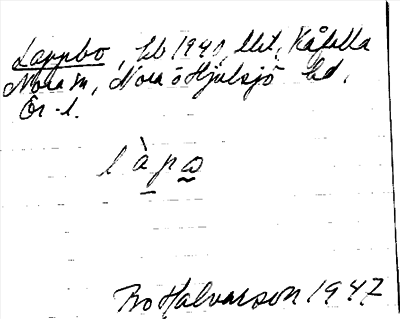 Lappbo, lb 1940, Kåfalla
Nora sn, Nora o Hjulsjö bd,
Ör-l.
làpo
Bo Halvarson 1947